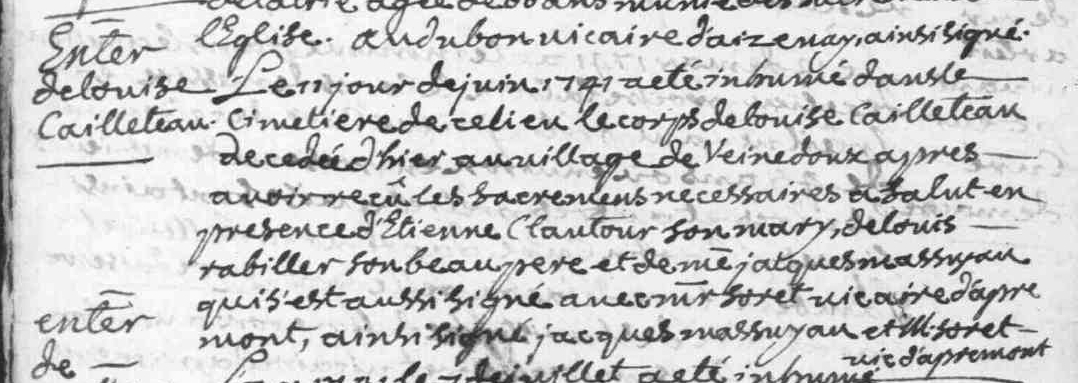 agée de 60 ans munie des
Enter l'Eglise. audubon vicaire d'aizenay, ainsi signé.
de louise Le 11 jour de juin 1741 a eté inhumé dans le
Cailleteau. Cimetiere de ce lieu le corps de louise Cailleteau
decedée d'hier au village de Veinedoux apres
avoir reçû les sacremens necessaires a salut en
presence d'Etienne Clautour son mary, de louis
rabiller son beaupere et de me jacques massuyau
qui s'est aussi signé avec mr soret vicaire d'apre
enter mont, ainsi signé jacques massuyau et M. soret
vic d'apremont
de le 7 de juillet a eté inhumé